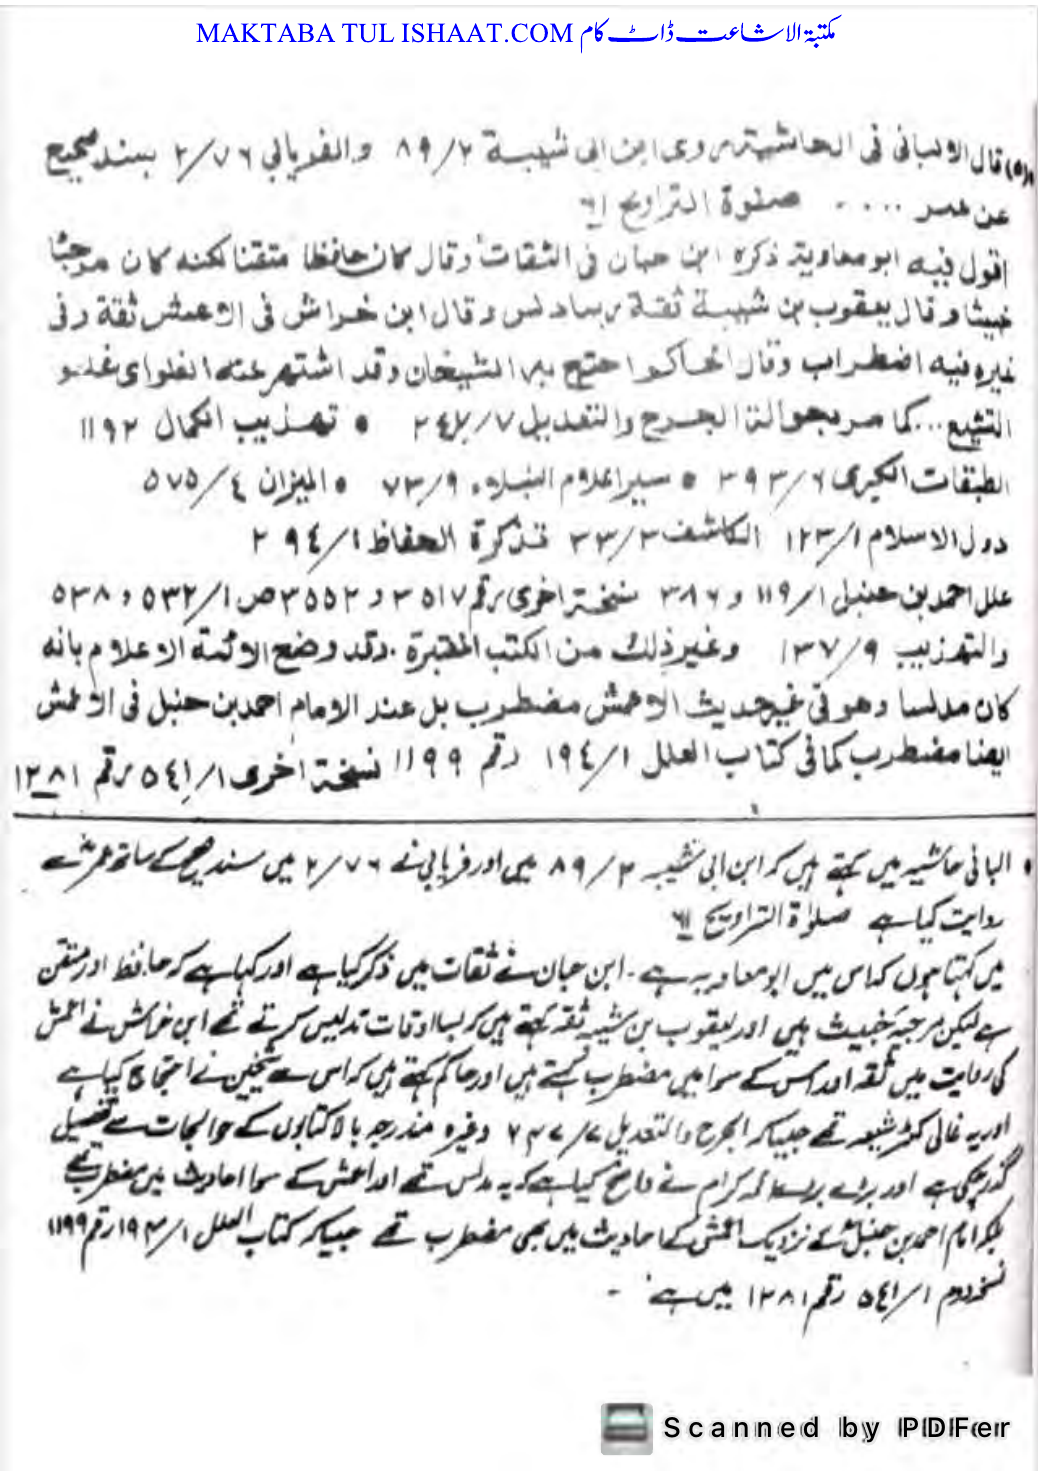 MAKTABA TUL ISHAAT.COM مکتبۃ الاشاعت ڈاٹ کام
(٥) قال الالبانی فی الحاشیۃ روی ابن ابی شیبۃ ٢/٨٩ والفریابی ٢/٧٦ بسند صحیح
عن عمر .... صلوٰۃ التراویح ٦١
اقول فیہ ابو معاویۃ ذکرہ ابن حبان فی الثقات وقال کان حافظا متقنا لکنہ کان مرجئا
خبیثا وقال یعقوب بن شیبۃ ثقۃ ربما دلس وقال ابن خراش فی الاعمش ثقۃ وفی
غیرہ فیہ اضطراب وقال الحاکم احتج بہ الشیخان وقد اشتھر عنہ الغلو ای غلو
التشیع... کما مر بحوالۃ الجرح والتعدیل ٧/ • تہذیب الکمال ١١٩٢
الطبقات الکبری ٦/٣٩٣ • سیر اعلام النبلاء ٩/٧٣ • المیزان ٤/٥٧٥
دول الاسلام ١/١٢٣ الکاشف ٣/٣٣ تذکرۃ الحفاظ ١/٢٩٤
علل احمد بن حنبل ١/١١٩ و ٣٨٦ نسخۃ اخری رقم ٣٥١٧ و ٣٥٥٢ ص ١/٥٣٢ و ٥٣٨
والتہذیب ٩/١٣٧ وغیر ذلک من الکتب المعتبرۃ . وقد وضح الائمۃ الاعلام بانہ
کان مدلسا وھو فی غیر حدیث الاعمش مضطرب بل عند الامام احمد بن حنبل فی الاعمش
ایضا مضطرب کما فی کتاب العلل ١/١٩٤ رقم ١١٩٩ نسخۃ اخری ١/٥٤١ رقم ١٢٨١
• البانی حاشیہ میں کہتے ہیں کہ ابن ابی شیبہ ٢/٨٩ میں اور فریابی نے ٢/٧٦ میں سند صحیح کے ساتھ عمرؓ سے
روایت کیا ہے صلوٰۃ التراویح ٦١
میں کہتا ہوں کہ اس میں ابو معاویہ ہے ۔ ابن حبان نے ثقات میں ذکر کیا ہے اور کہا ہے کہ حافظ اور متقن
ہے لیکن مرجیہ خبیث ہیں اور یعقوب بن شیبہ ثقہ کہتے ہیں کہ بسا اوقات تدلیس کرتے تھے ابن خراش نے اعمش
کی روایت میں ثقہ اور اس کے سوا میں مضطرب کہتے ہیں اور حاکم کہتے ہیں کہ اس سے شیخین نے احتجاج کیا ہے
اور یہ غالی کٹر شیعہ تھے جیسا کہ الجرح والتعدیل ٧/ وغیرہ مندرجہ بالا کتابوں کے حوالجات سے تفصیل
گذر چکی ہے اور بڑے بڑے ائمہ کرام نے واضح کیا ہے کہ یہ مدلس تھے اور اعمش کے سوا احادیث میں مضطرب تھے
بلکہ امام احمد بن حنبلؒ کے نزدیک اعمش کے احادیث میں بھی مضطرب تھے جیسا کہ کتاب العلل ١/١٩٤ رقم ١١٩٩
نسخہ دوم ١/٥٤١ رقم ١٢٨١ میں ہے ۔
Scanned by PDFer